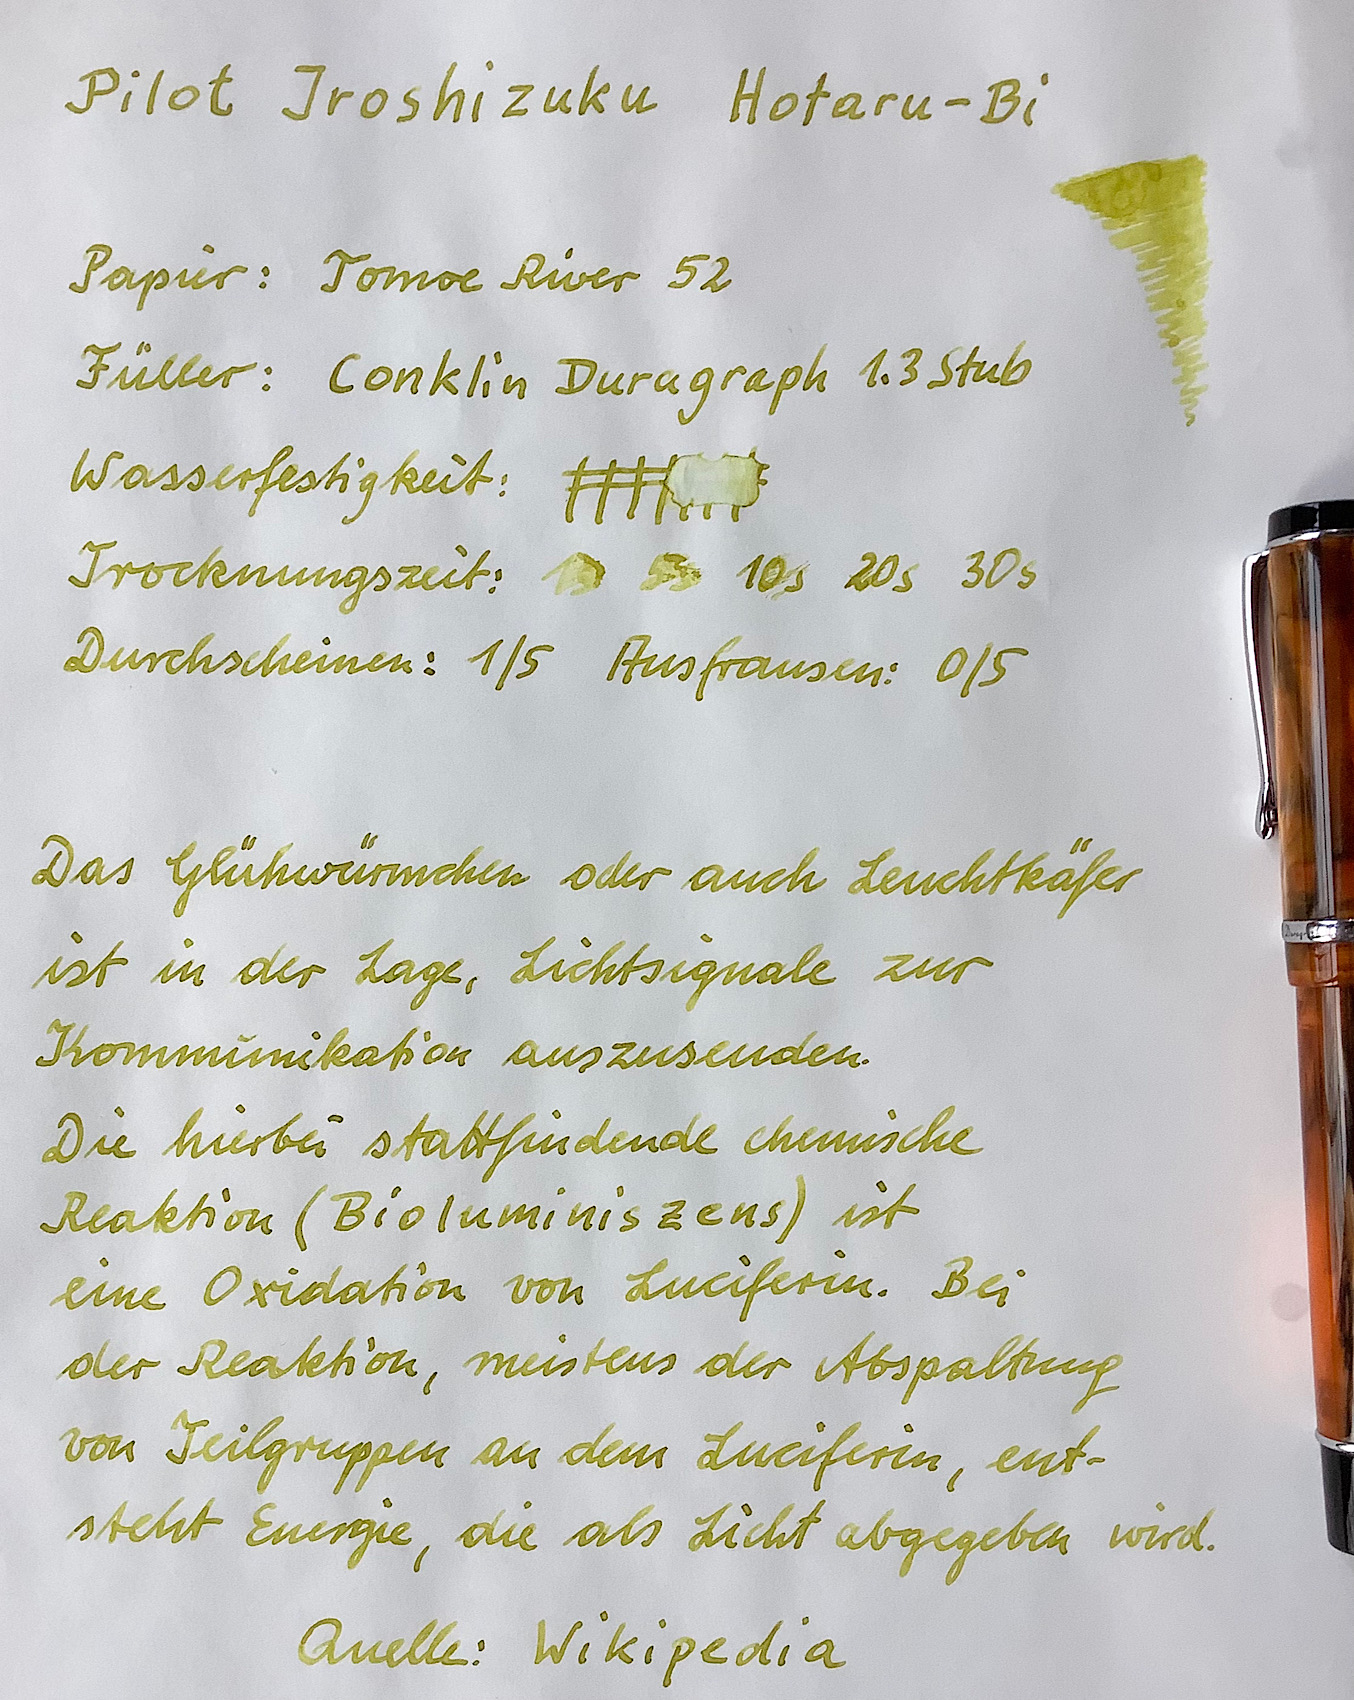 Pilot Iroshizuku Hotaru-Bi
Papier: Tomoe River 52
Füller: Conklin Duragraph 1.3 Stub
Wasserfestigkeit:
Trocknungszeit: 1s 5s 10s 20s 30s
Durchscheinen: 1/5 Ausfransen: 0/5
Das Glühwürmchen oder auch Leuchtkäfer
ist in der Lage, Lichtsignale zur
Kommunikation auszusenden.
Die hierbei stattfindende chemische
Reaktion (Bioluminiszens) ist
eine Oxidation von Luciferin. Bei
der Reaktion, meistens der Abspaltung
von Teilgruppen an dem Luciferin, ent-
steht Energie, die als Licht abgegeben wird.
Quelle: Wikipedia